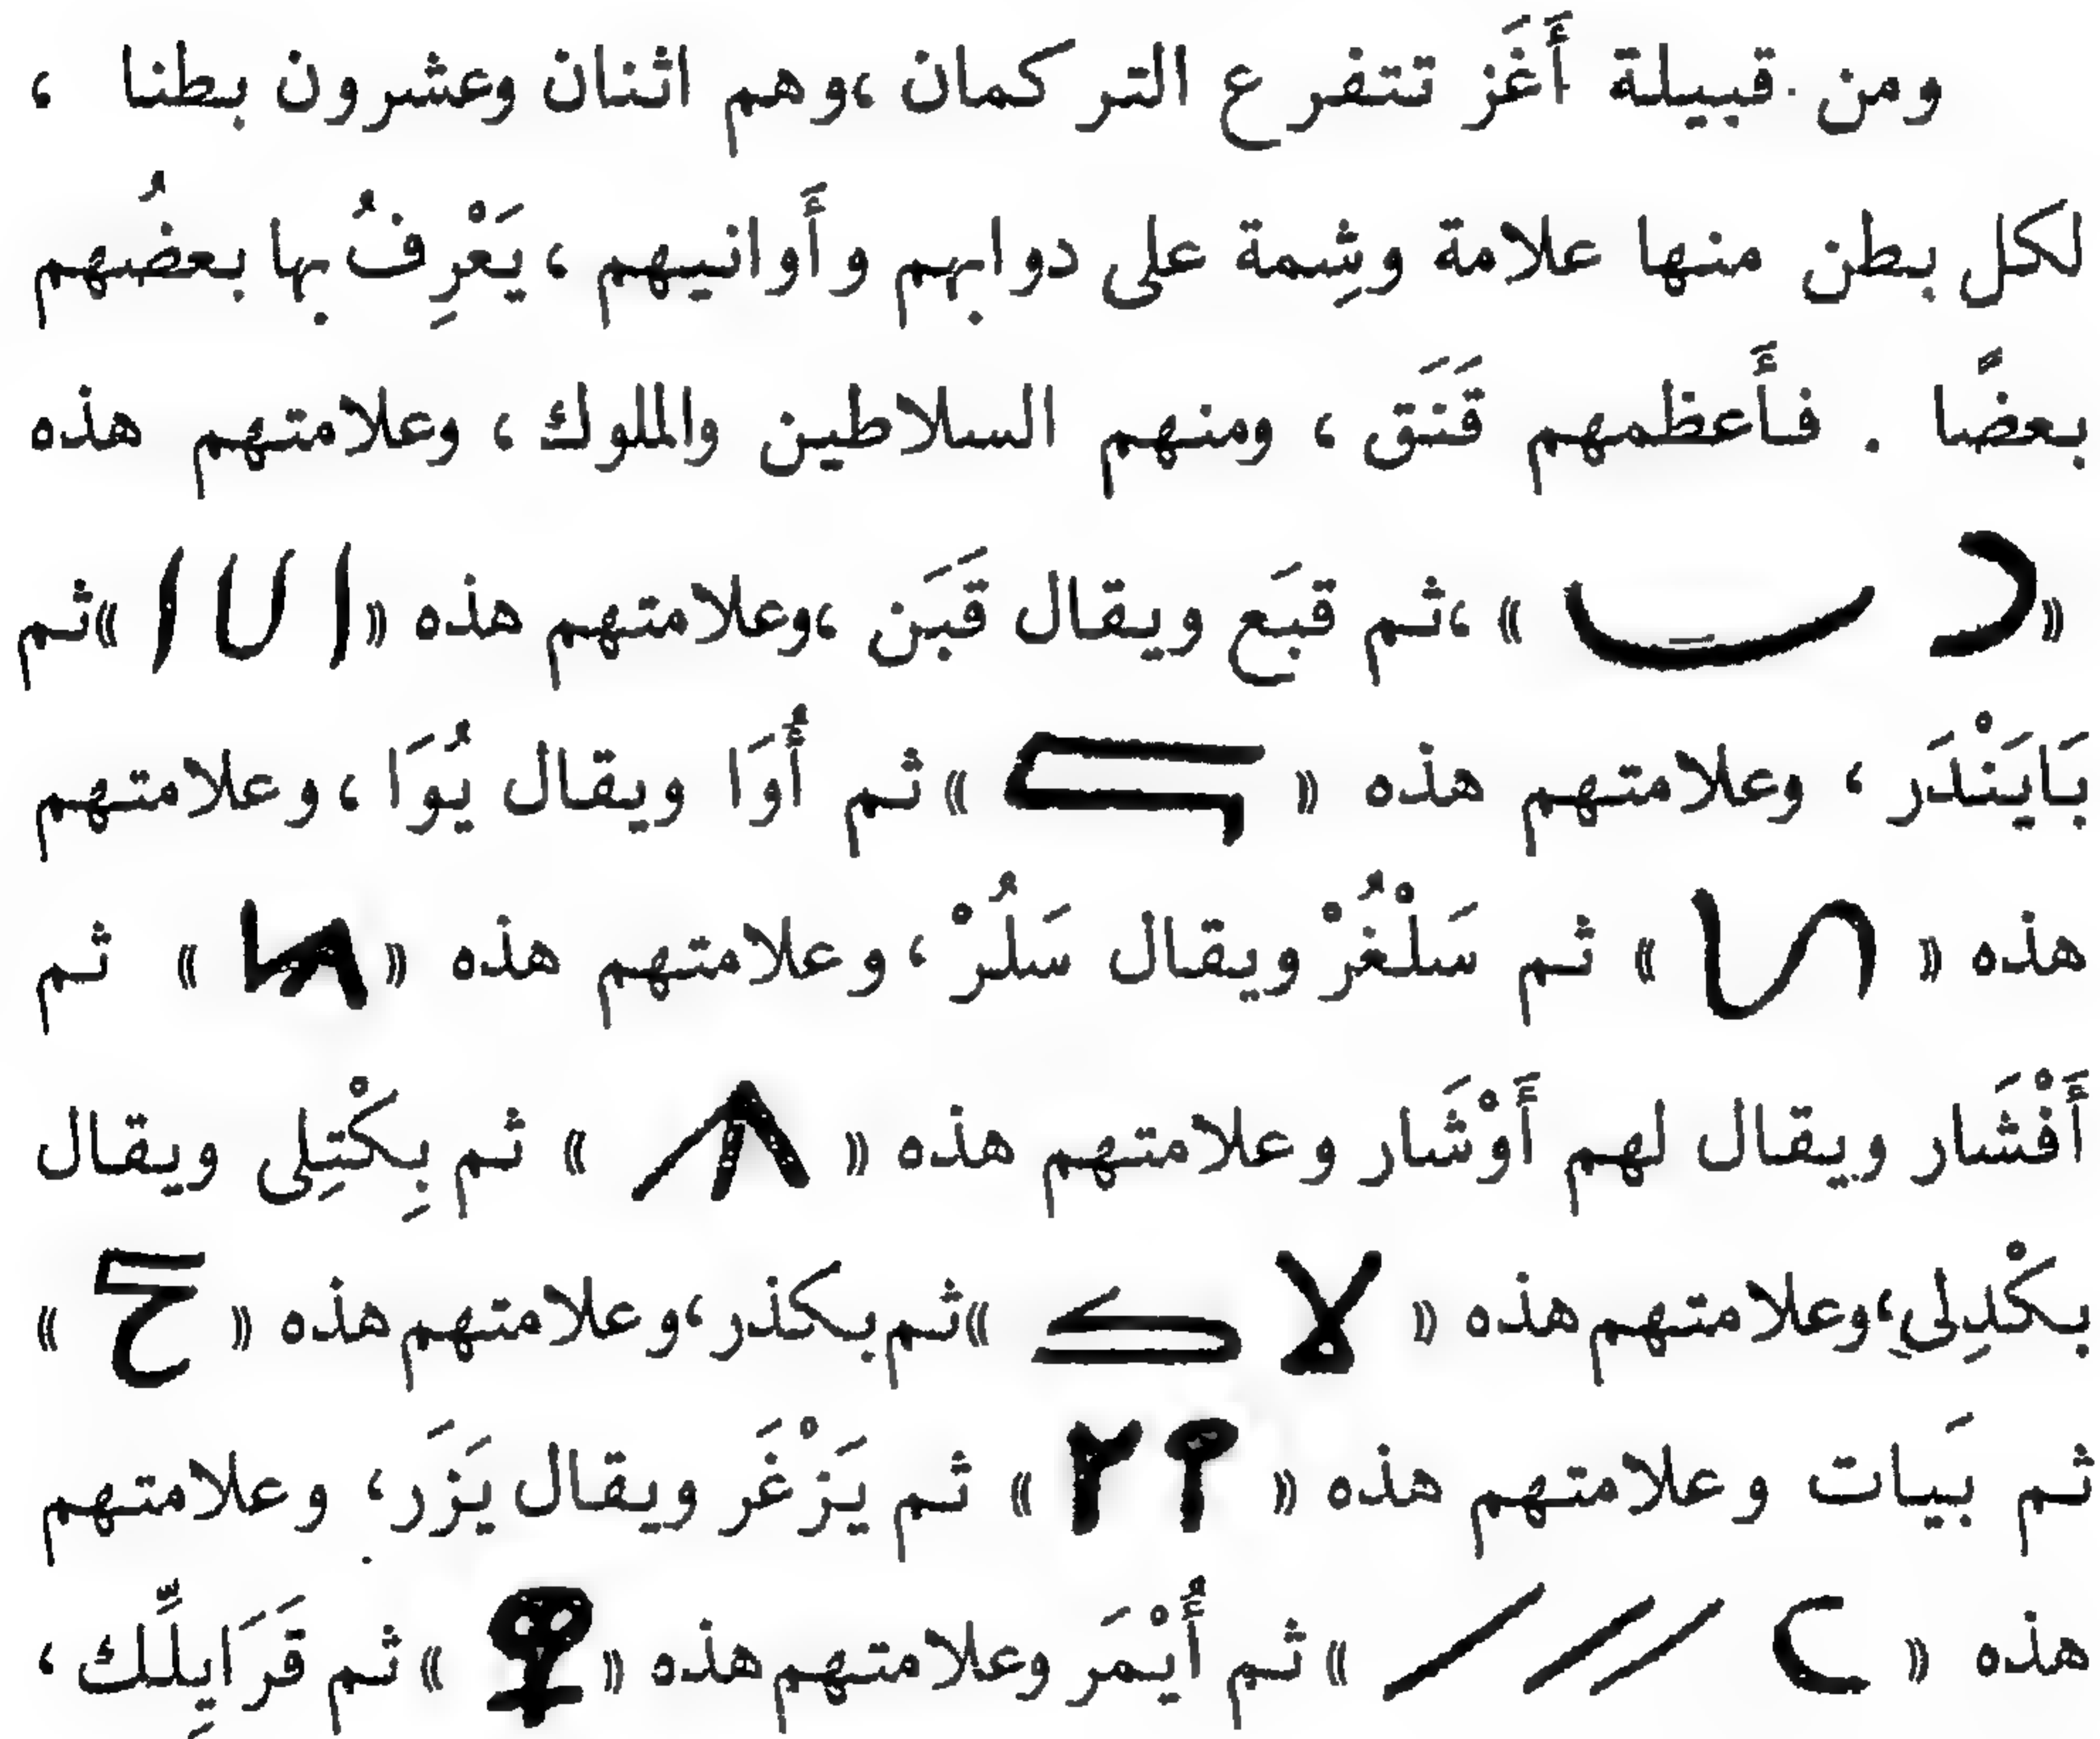 ومن قبيلة أَغَز تتفرع التركمان ، وهم اثنان وعشرون بطنا ،
لكل بطن منها علامة وشِمة على دوابهم وأَوانيهم ، يَعْرِفُ بها بعضُهم
بعضًا . فأَعظمهم قَنَق ، ومنهم السلاطين والملوك ، وعلامتهم هذه
« » ، ثم قبَع ويقال قَبَن ، وعلامتهم هذه « » ثم
بَايَنْدَر ، وعلامتهم هذه « » ثم أُوَا ويقال يُوَا ، وعلامتهم
هذه « » ثم سَلْغُرْ ويقال سَلُرْ ، وعلامتهم هذه « » ثم
أَفْشَار ويقال لهم أَوْشَار وعلامتهم هذه « » ثم بِكْتِلِى ويقال
بكْدِلِى ، وعلامتهم هذه « » ثم بكذر ، وعلامتهم هذه « »
ثم بَيات وعلامتهم هذه « » ثم يَزْغَر ويقال يَزَر ، وعلامتهم
هذه « » ثم أُيْمَر وعلامتهم هذه « » ثم قَرَايِلُّك ،